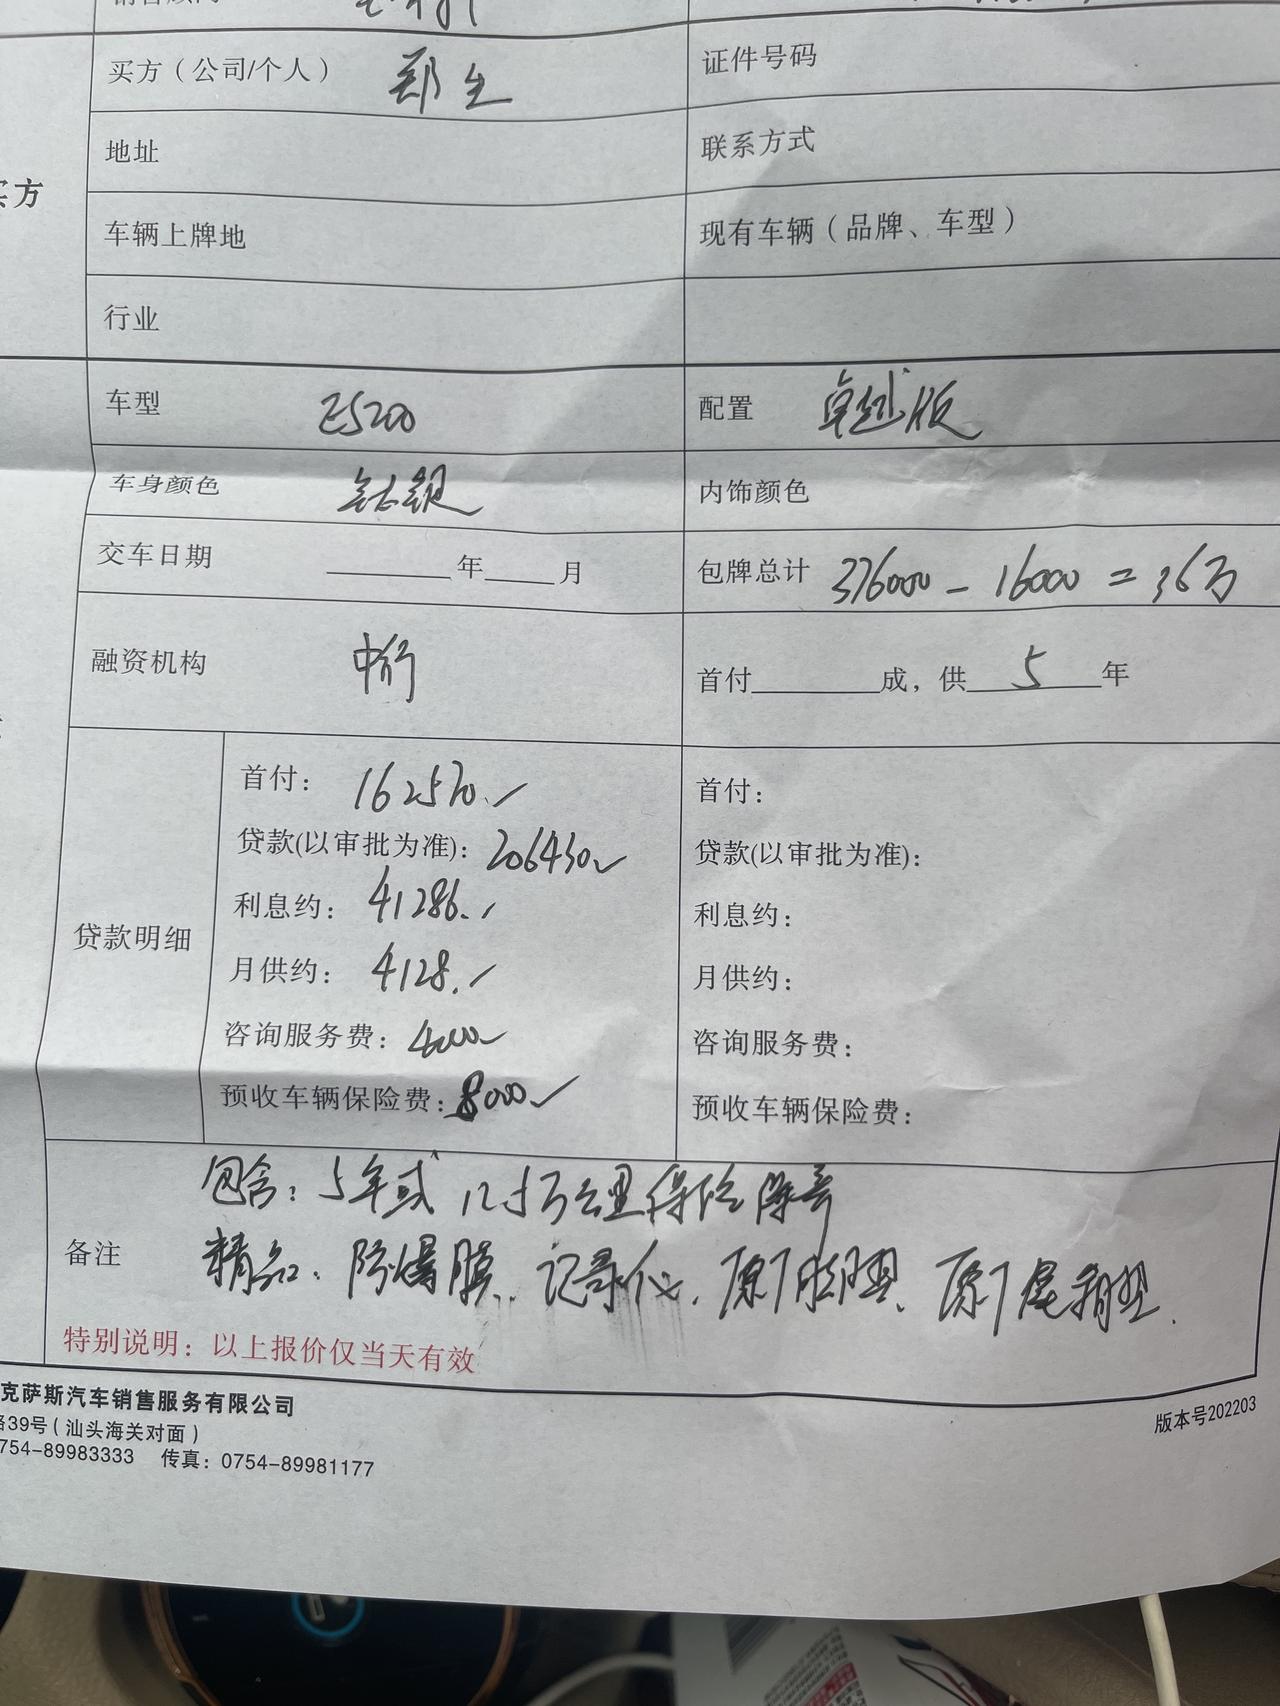 买方（公司/个人） 郑生
证件号码
地址
联系方式
买方
车辆上牌地
现有车辆（品牌、车型）
行业
车型 ES200
配置 卓越版
车身颜色 钛银
内饰颜色
交车日期 年 月
包牌总计 376000 - 16000 = 36万
融资机构 中行
首付 成，供 5 年
贷款明细
首付： 162570.
贷款(以审批为准)： 206430
利息约： 41286.
月供约： 4128.
咨询服务费： 4000
预收车辆保险费： 8000
首付：
贷款(以审批为准)：
利息约：
月供约：
咨询服务费：
预收车辆保险费：
备注
包含：5年或 万公里保险
精品、防爆膜、记录仪、原厂脚垫、原厂尾箱垫.
特别说明：以上报价仅当天有效
克萨斯汽车销售服务有限公司
路39号（汕头海关对面）
754-89983333 传真：0754-89981177
版本号202203